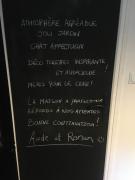 ATMOSPHÈRE AGRÉABLE
JOLI JARDIN
CHAT AFFECTUEUX
DÉCO TERRESTRE INSPIRANTE
ET AUDACIEUSE
MERCI POUR LE CIDRE!
LA MAISON A PARFAITEMENT
RÉPONDU À NOS ATTENTES
BONNE CONTINUATION!
Aude et Ronan